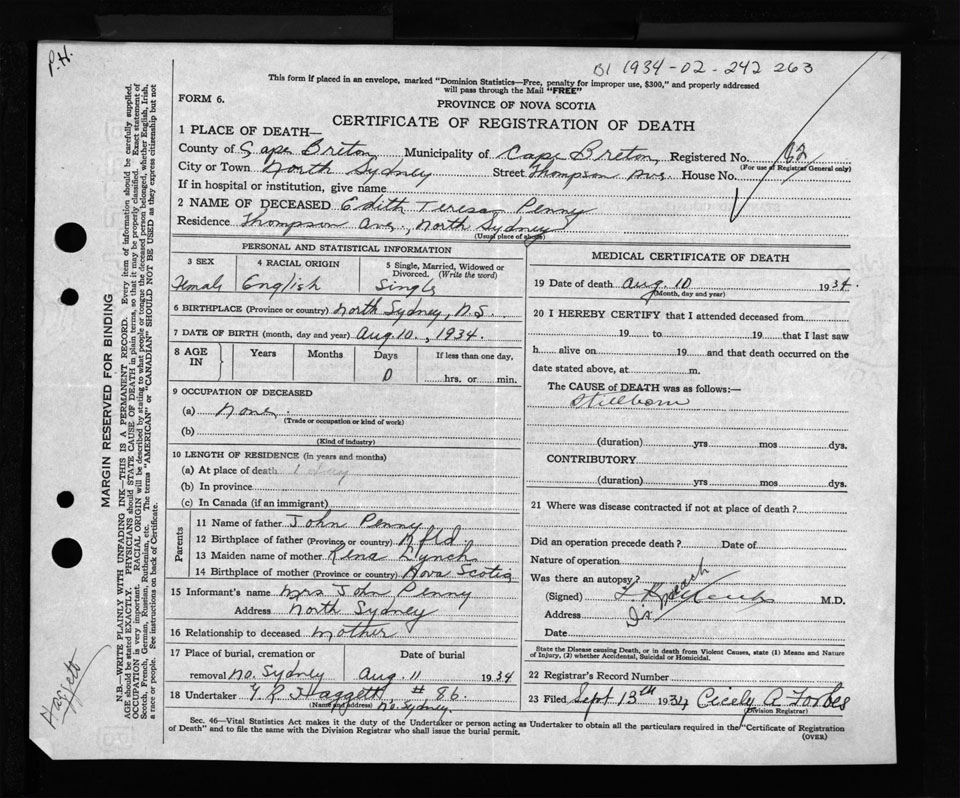 P.H.
01 1934-02-242 263
This form if placed in an envelope, marked "Dominion Statistics—Free, penalty for improper use, $300," and properly addressed
will pass through the Mail "FREE"
FORM 6.
PROVINCE OF NOVA SCOTIA
CERTIFICATE OF REGISTRATION OF DEATH
1 PLACE OF DEATH—
County of Cape Breton Municipality of Cape Breton Registered No. 62
(For use of Registrar General only)
City or Town North Sydney Street Thompson Ave. House No.
If in hospital or institution, give name
2 NAME OF DECEASED Edith Teresa Penny
Residence Thompson Ave., North Sydney
(Usual place of abode)
PERSONAL AND STATISTICAL INFORMATION
3 SEX
Female
4 RACIAL ORIGIN
English
5 Single, Married, Widowed or
Divorced. (Write the word)
Single
6 BIRTHPLACE (Province or country) North Sydney, N.S.
7 DATE OF BIRTH (month, day and year) Aug. 10, 1934.
8 AGE
IN
Years Months Days If less than one day,
0 hrs. or min.
9 OCCUPATION OF DECEASED
(a) None
(Trade or occupation or kind of work)
(b)
(Kind of industry)
10 LENGTH OF RESIDENCE (in years and months)
(a) At place of death 1 day
(b) In province
(c) In Canada (if an immigrant)
Parents
11 Name of father John Penny
12 Birthplace of father (Province or country) Nfld
13 Maiden name of mother Rena Lynch
14 Birthplace of mother (Province or country) Nova Scotia
15 Informant's name Mrs John Penny
Address North Sydney
16 Relationship to deceased Mother
17 Place of burial, cremation or Date of burial
removal No. Sydney Aug 11 1934
18 Undertaker Haggett # 86.
(Name and address) No. Sydney.
MEDICAL CERTIFICATE OF DEATH
19 Date of death Aug. 10 1934.
(Month, day and year)
20 I HEREBY CERTIFY that I attended deceased from
19 to 19 that I last saw
h alive on 19 and that death occurred on the
date stated above, at m.
The CAUSE of DEATH was as follows:—
Stillborn
(duration) yrs. mos. dys.
CONTRIBUTORY
(duration) yrs. mos. dys.
21 Where was disease contracted if not at place of death?
Did an operation precede death? Date of
Nature of operation
Was there an autopsy?
(Signed) M.D.
Address
Date
State the Disease causing Death, or in death from Violent Causes, state (1) Means and Nature
of Injury, (2) whether Accidental, Suicidal or Homicidal.
22 Registrar's Record Number
23 Filed Sept 13th 1934 Cicely A Forbes
(Division Registrar)
Sec. 46—Vital Statistics Act makes it the duty of the Undertaker or person acting as Undertaker to obtain all the particulars required in the "Certificate of Registration
of Death" and to file the same with the Division Registrar who shall issue the burial permit.
(OVER)
MARGIN RESERVED FOR BINDING
N.B.—WRITE PLAINLY WITH UNFADING INK—THIS IS A PERMANENT RECORD. Every item of information should be carefully supplied.
AGE should be stated EXACTLY. PHYSICIANS should STATE CAUSE OF DEATH in plain terms, so that it may be properly classified. Exact statement of
OCCUPATION is very important. RACIAL ORIGIN will be described by stating to what people or tongue the deceased person belonged, whether English, Irish,
Scotch, French, German, Russian, Ruthenian, etc. The terms "AMERICAN" or "CANADIAN" SHOULD NOT BE USED as they express citizenship but not
a race or people. See instructions on back of Certificate.
Haggett